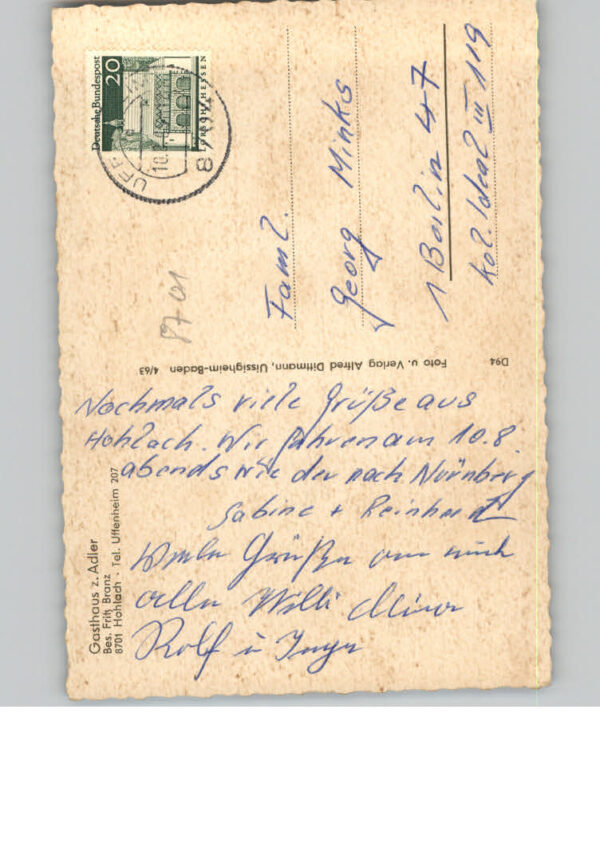 Deutsche Bundespost
20
LORSCH/HESSEN
UFF
10.
87
8701
Faml.
Georg Minks
1 Berlin 47
Kol. Ideal III 119
D94
Foto u. Verlag Alfred Dittmann, Uissigheim-Baden 4/63
Nochmals viele Grüße aus
Hohlach. Wir fahren am 10.8.
abends wie der nach Nürnberg
Sabine + Reinhardt
Grüße an
alle Willi
Rolf u Inge
Gasthaus z. Adler
Bes. Fritz Branz
8701 Hohlach · Tel. Uffenheim 207